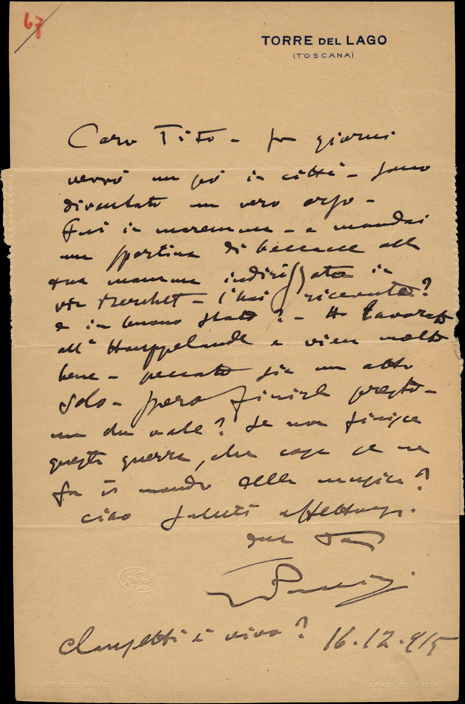 67
TORRE DEL LAGO
(TOSCANA)
Caro Tito - fra giorni
verrò un pò in città - sono
diventato un vero orso -
Fui in maremma - e mandai
una sportina di beccacce alla
tua mamma indirizzata in
via Berchet - l'hai ricevuta?
e in buono stato? - Ho lavorato
all' Houppelande e vien molto
bene - peccato sia un atto
solo - però finirla presto -
ma che vale? Se non finisce
questa guerra, che cosa se ne
fa il mondo della musica?
ciao saluti affettuosi
tuo
GPuccini
Clausetti è vivo? 16.12.915